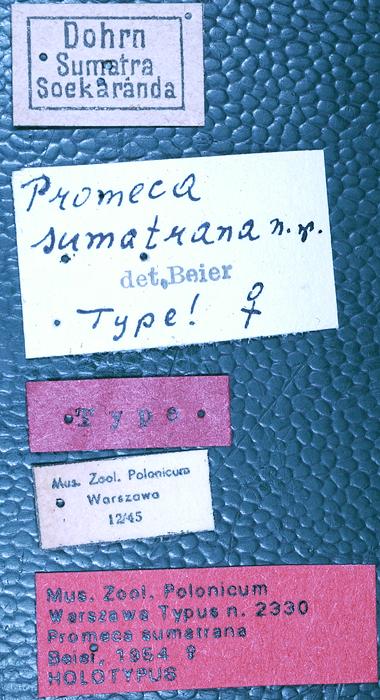 Dohrn
Sumatra
Soekaranda
Promeca
sumatrana n. sp.
det. Beier
Type! ♀
Type
Mus. Zool. Polonicum
Warszawa
12/45
Mus. Zool. Polonicum
Warszawa Typus n. 2330
Promeca sumatrana
Beier, 1954 ♀
HOLOTYPUS